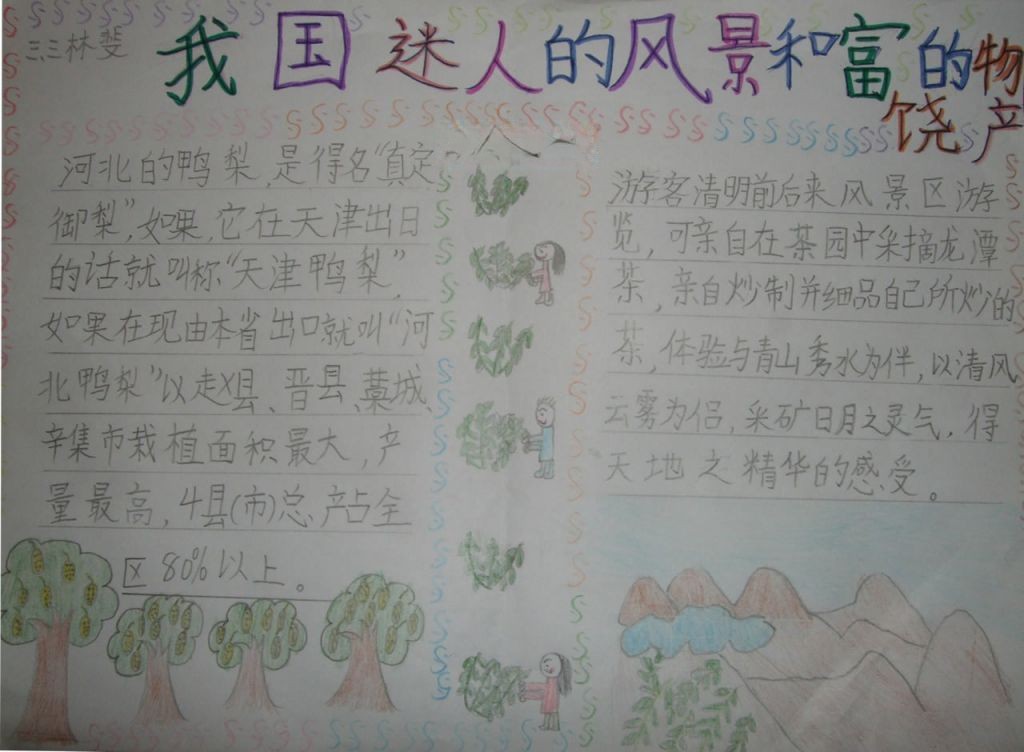 三三林斐
我国迷人的风景和富的物
饶产
河北的鸭梨,是得名“真定
御梨”,如果,它在天津出日
的话就叫称“天津鸭梨”,
如果在现由本省出口就叫“河
北鸭梨”以赵县、晋县、藁城、
辛集市栽植面积最大,产
量最高,4县(市)总产占全
区80%以上。
游客清明前后来风景区游
览,可亲自在茶园中采摘龙潭
茶,亲自炒制并细品自己所炒的
茶,体验与青山秀水为伴,以清风
云雾为侣,采矿日月之灵气,得
天地之精华的感受。